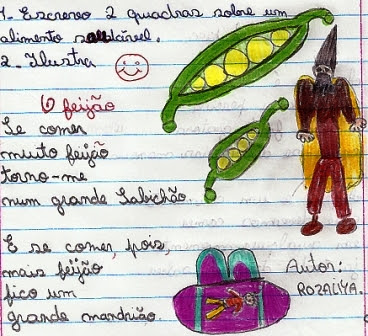 1- Escrevo 2 quadras sobre um
alimento saudável.
2- Ilustra
O feijão
Se comer
muito feijão
torno-me
num grande Sabichão.
E se comer, pois,
mais feijão
fico um
grande mandrião.
Autor:
ROZALIYA.